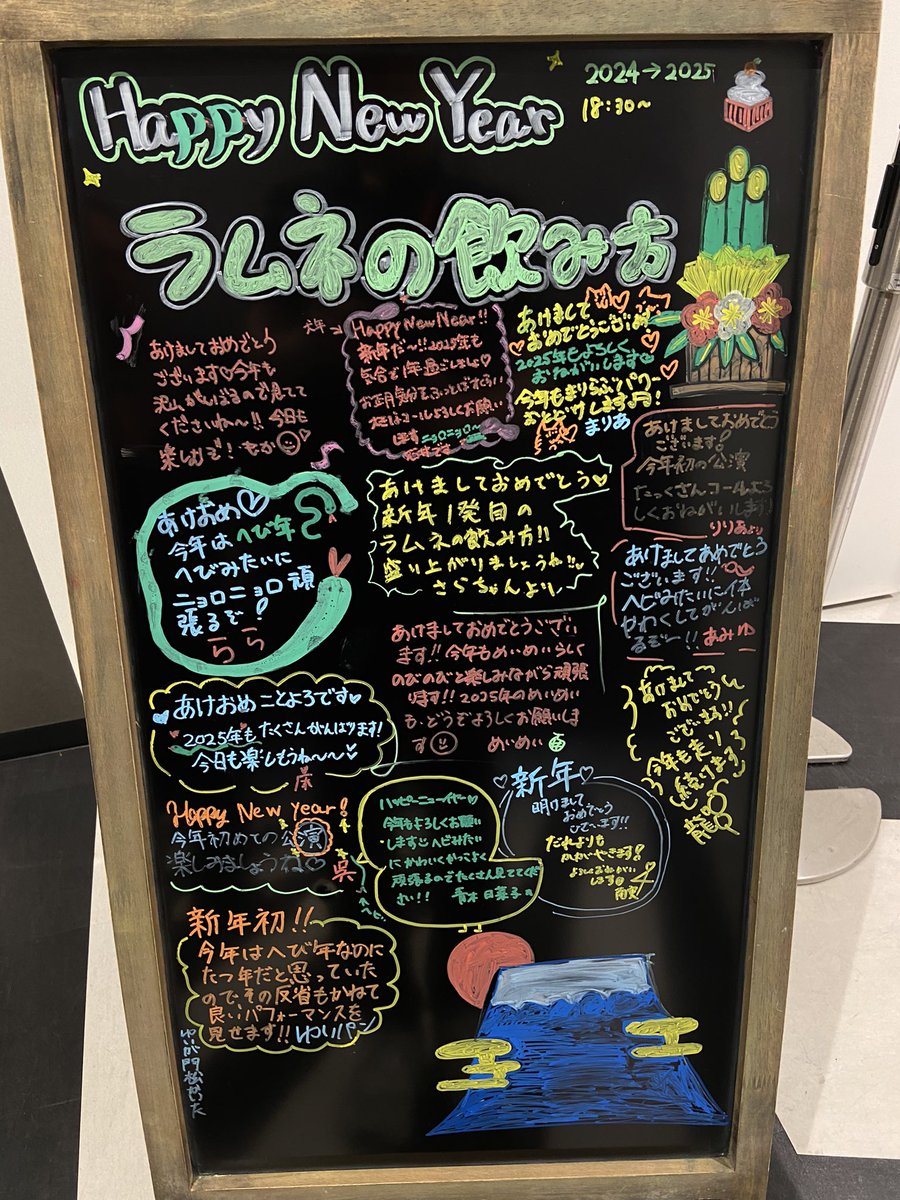 Happy New Year
2024→2025
18:30~
ラムネの飲み方
あけましておめでとう
ございます♡今年も
沢山がんばるので見てて
くださいね〜!!今日も
楽しむぞ!
Happy New Near!!
新年だ〜!!2025年も
お願い
します ニョロニョロ〜
あけまして
おめでとうございます
2025年もよろしく
おねがいします
今年もまりあらぶパワー
おとどけします
まりあ
あけましておめでとう
ございます!
今年初の公演
たっくさんコールよろ
しくおねがいします!
りりあより
あけおめ♡
今年はへび年
へびみたいに
ニョロニョロ頑
張るぞ!
らら
あけましておめでとう♡
新年1発目の
ラムネの飲み方!!
盛り上がりましょうね!!
さらちゃんより
あけましておめでとう
ございます!!
ヘビみたいに体
やわくしてがんば
るぞー!! あみゆ
あけましておめでとうござい
ます!!今年もめいめいらしく
のびのびと楽しみながら頑張
ります!!2025年のめいめい
も、どうぞよろしくお願いしま
す めいめい
あけおめことよろです♥
2025年もたくさんがんばります!
今日も楽しもうね〜〜
あけまして
おめでとう
ございます!!
今年も走り
続けます!
龍
Happy New Year!
今年初めての公演
楽しみましょうね♡
呉
ハッピーニューイヤー♡
今年もよろしくお願い
します ヘビみたい
にかわいくかっこよく
頑張るのでたくさん見ててくだ
さい!! 青木日菜子
←ヘビ。
♡新年♡
明けまして
おめでとう
ございます!!
だれよりも
かがやきます!
よろしくおねがい
します
新年初!!
今年はへび年なのに
たつ年だと思っていた
ので、その反省もかねて
良いパフォーマンスを
見せます!!ゆいパン